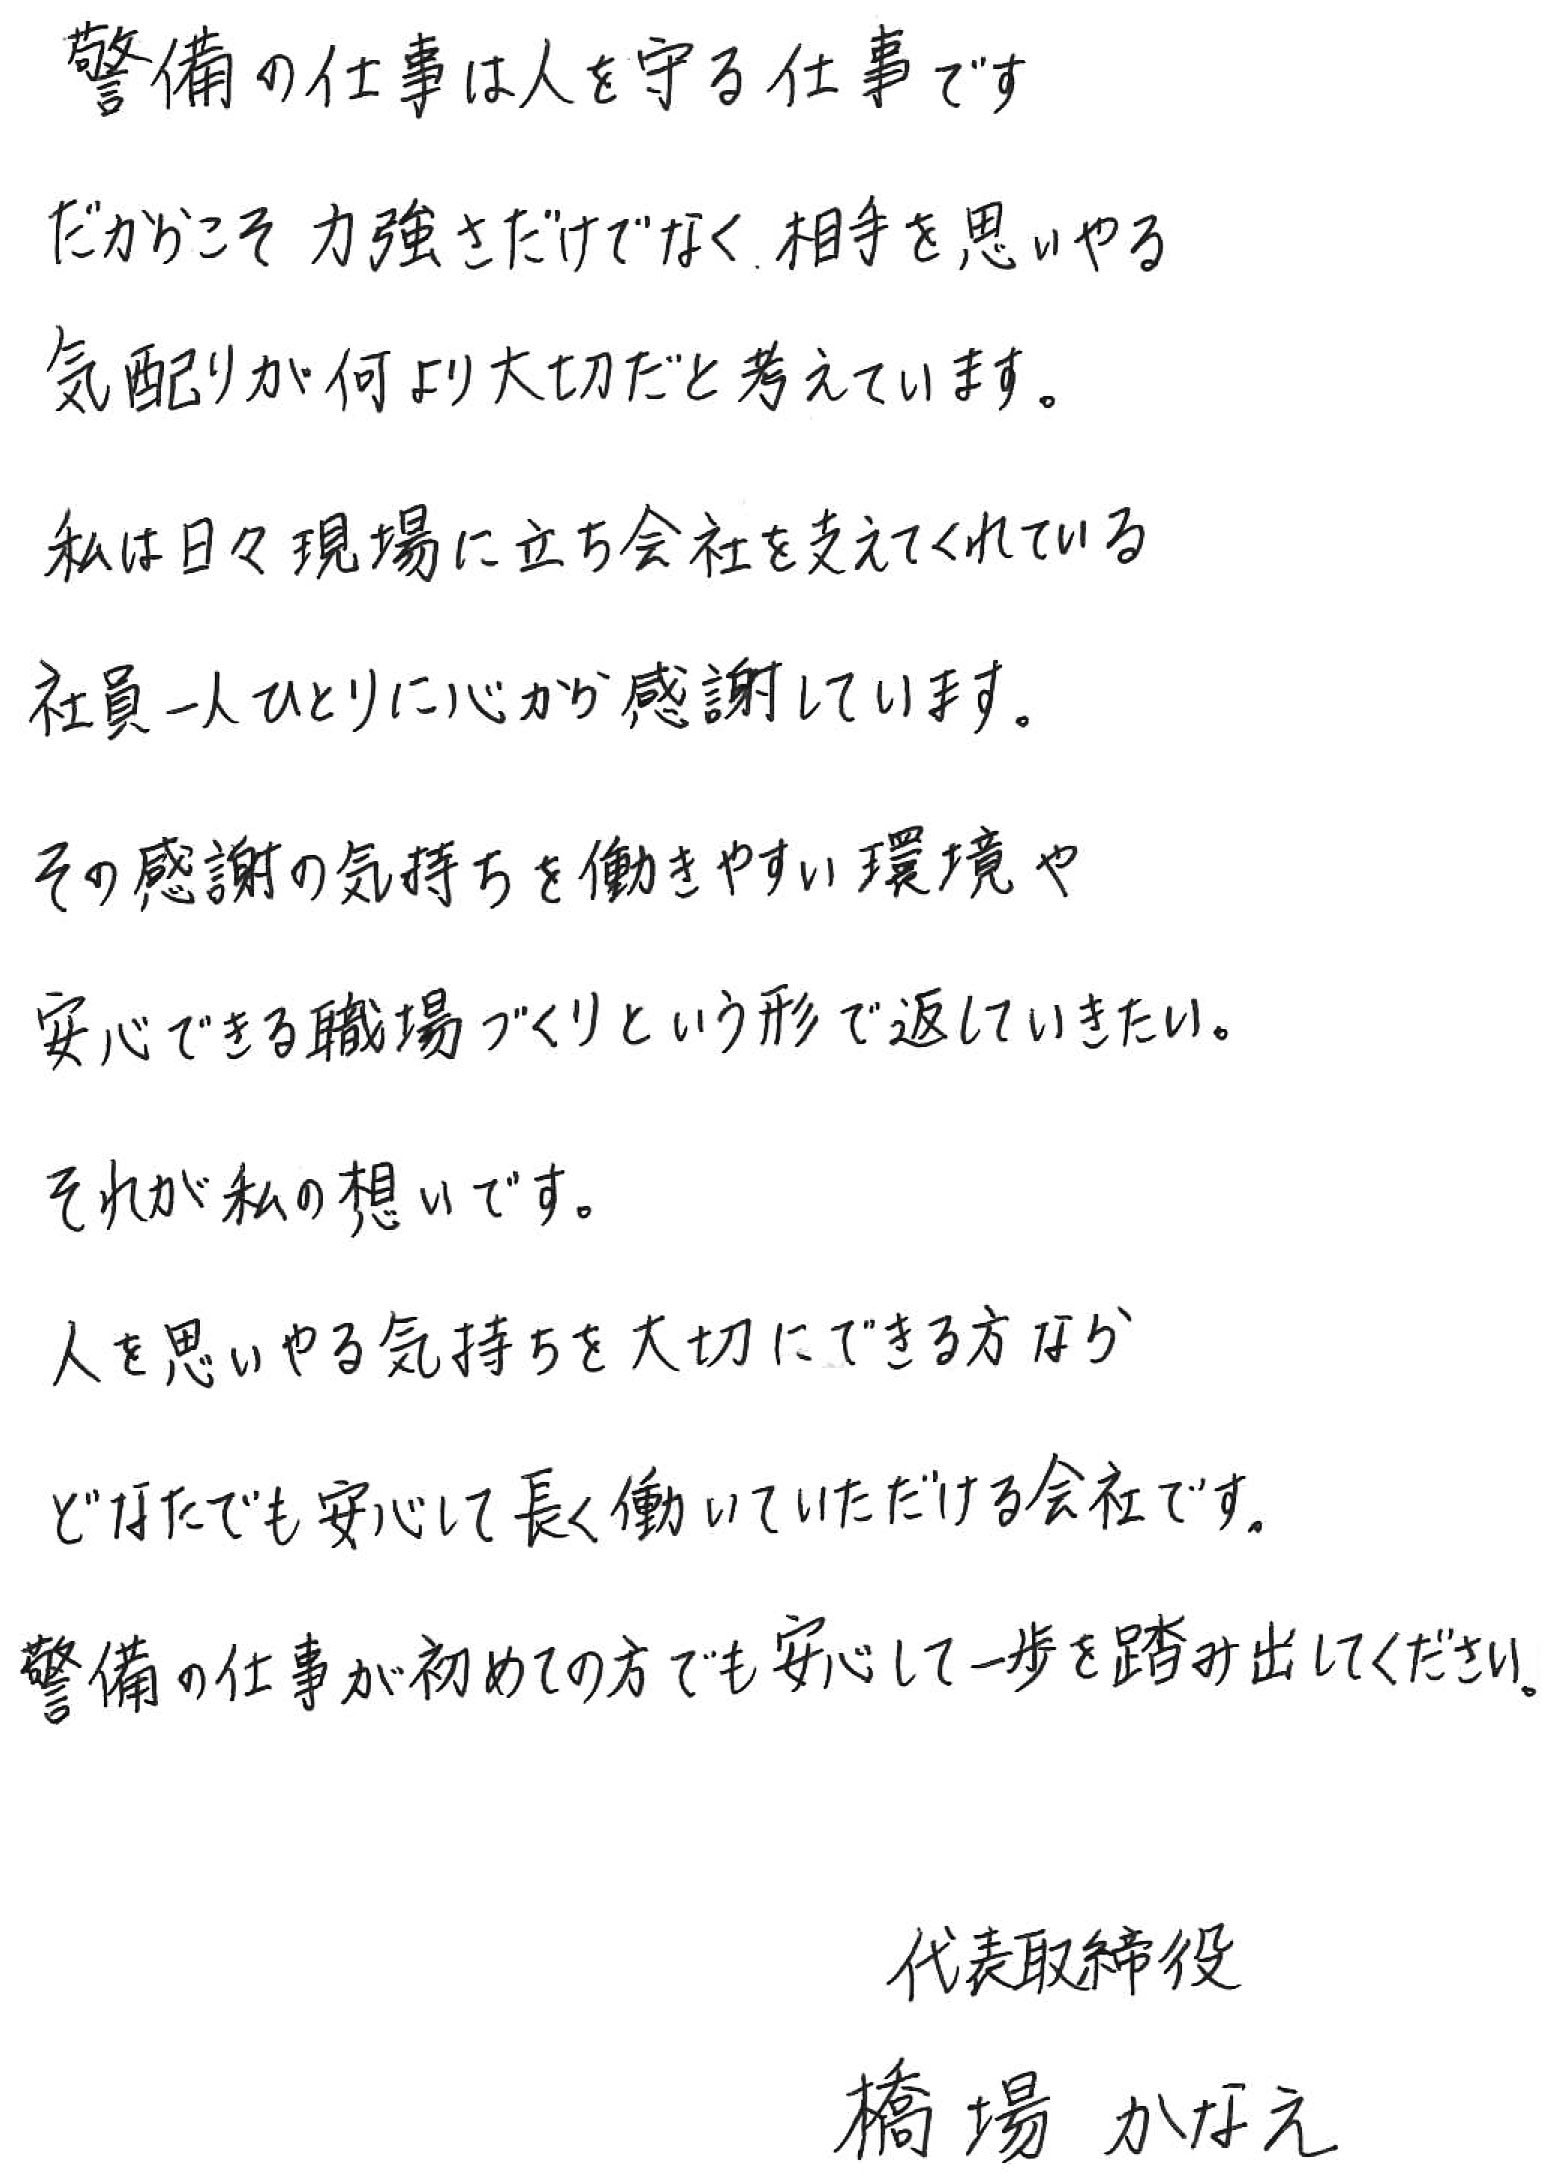 警備の仕事は人を守る仕事です
だからこそ力強さだけでなく、相手を思いやる
気配りが何より大切だと考えています。
私は日々現場に立ち会社を支えてくれている
社員一人ひとりに心から感謝しています。
その感謝の気持ちを働きやすい環境や
安心できる職場づくりという形で返していきたい。
それが私の想いです。
人を思いやる気持ちを大切にできる方なら
どなたでも安心して長く働いていただける会社です。
警備の仕事が初めての方でも安心して一歩を踏み出してください。
代表取締役
橋場 かなえ